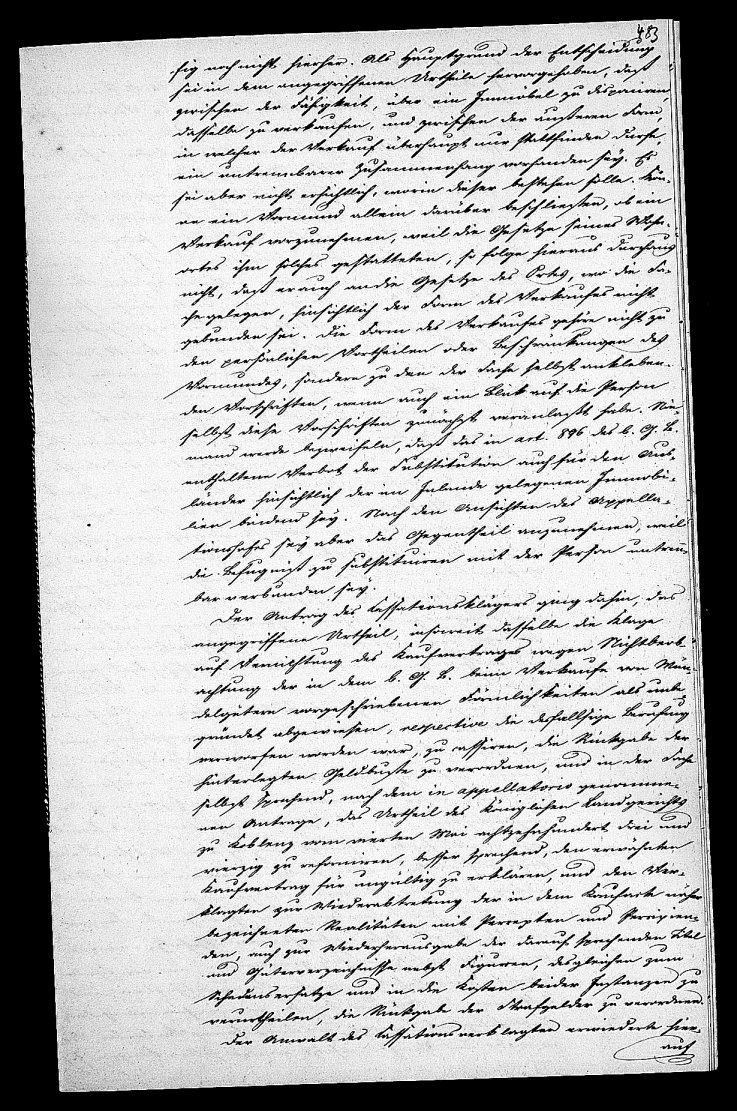 483
sig noch nicht hierher. Als Hauptgrund der Entscheidung
sei in dem angegriffenen Urtheile hervorgehoben, daß
zwischen der Fähigkeit, über ein Immöbel zu disponiren,
dasselbe zu verkaufen, und zwischen der äußeren Form,
in welcher der Verkauf überhaupt nur stattfinden dürfe,
ein untrennbarer Zusammenhang vorhanden sey. Es
sei aber nicht ersichtlich, worin dieser bestehen solle. Kön-
ne ein Vormund allein darüber beschließen, ob ein
Verkauf vorzunehmen, weil die Gesetze seines Wohn-
ortes ihm solches gestatteten, so folge hieraus durchaus
nicht, daß er auch an die Gesetze des Ortes, wo die Sa-
che gelegen, hinsichtlich der Form des Verkaufes nicht
gebunden sei. Die Form des Verkaufes gehöre nicht zu
den persönlichen Vortheilen oder Beschränkungen des
Vormundes, sondern zu den der Sache selbst ankleben-
den Vorschriften, wenn auch ein Blick auf die Person
selbst diese Vorschriften zunächst veranlaßt habe. Nie-
mand werde bezweifeln, daß das in art. 896 des b. G. B.
enthaltene Verbot der Substitution auch für den Aus-
länder hinsichtlich der im Inlande gelegenen Immobi-
lien bindend sey. Nach den Ansichten des Appella-
tionshofes sey aber das Gegentheil anzunehmen, weil
die Befugniß zu substituiren mit der Person untrenn-
bar verbunden sey.
Der Antrag des Cassationsklägers ging dahin, das
angegriffene Urtheil, insoweit dasselbe die Klage
auf Vernichtung des Kaufvertrages wegen Nichtbeob-
achtung der in dem b. G. B. beim Verkaufe von Mün-
delgütern vorgeschriebenen Förmlichkeiten als unbe-
gründet abgewiesen, respective die desfallsige Berufung
verworfen worden war, zu cassiren, die Rückgabe der
hinterlegten Geldbuße zu verordnen, und in der Sache
selbst sprechend, nach dem in appellatorio genomme-
nen Antrage, das Urtheil des Königlichen Landgerichts
zu Koblenz vom vierten Mai achtzehnhundert drei und
vierzig zu reformiren, besser sprechend, den erwähnten
Kaufvertrag für ungültig zu erklären, und den Ver-
klagten zur Wiederabtretung der in dem Kaufacte näher
bezeichneten Realitäten mit Percepten und Percipien-
den, auch zur Wiederherausgabe der darauf sprechenden Titel
und Güterverzeichnisse nebst Figuren, desgleichen zum
Schadensersatze und in die Kosten beider Instanzen zu
verurtheilen, die Rückgabe der Strafgelder zu verordnen.
Der Anwalt des Cassationsverklagten erwiederte hier-
auf